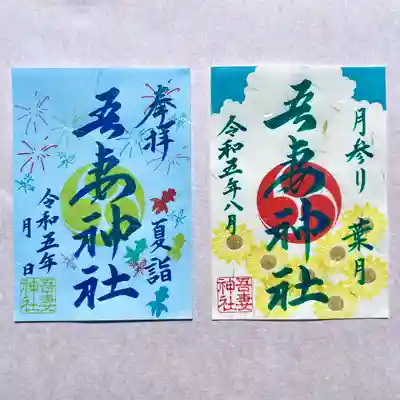 奉拝
夏詣
吾妻神社
令和五年
月
日
吾妻
神社
月参り
葉月
吾妻神社
令和五年八月
吾妻
神社